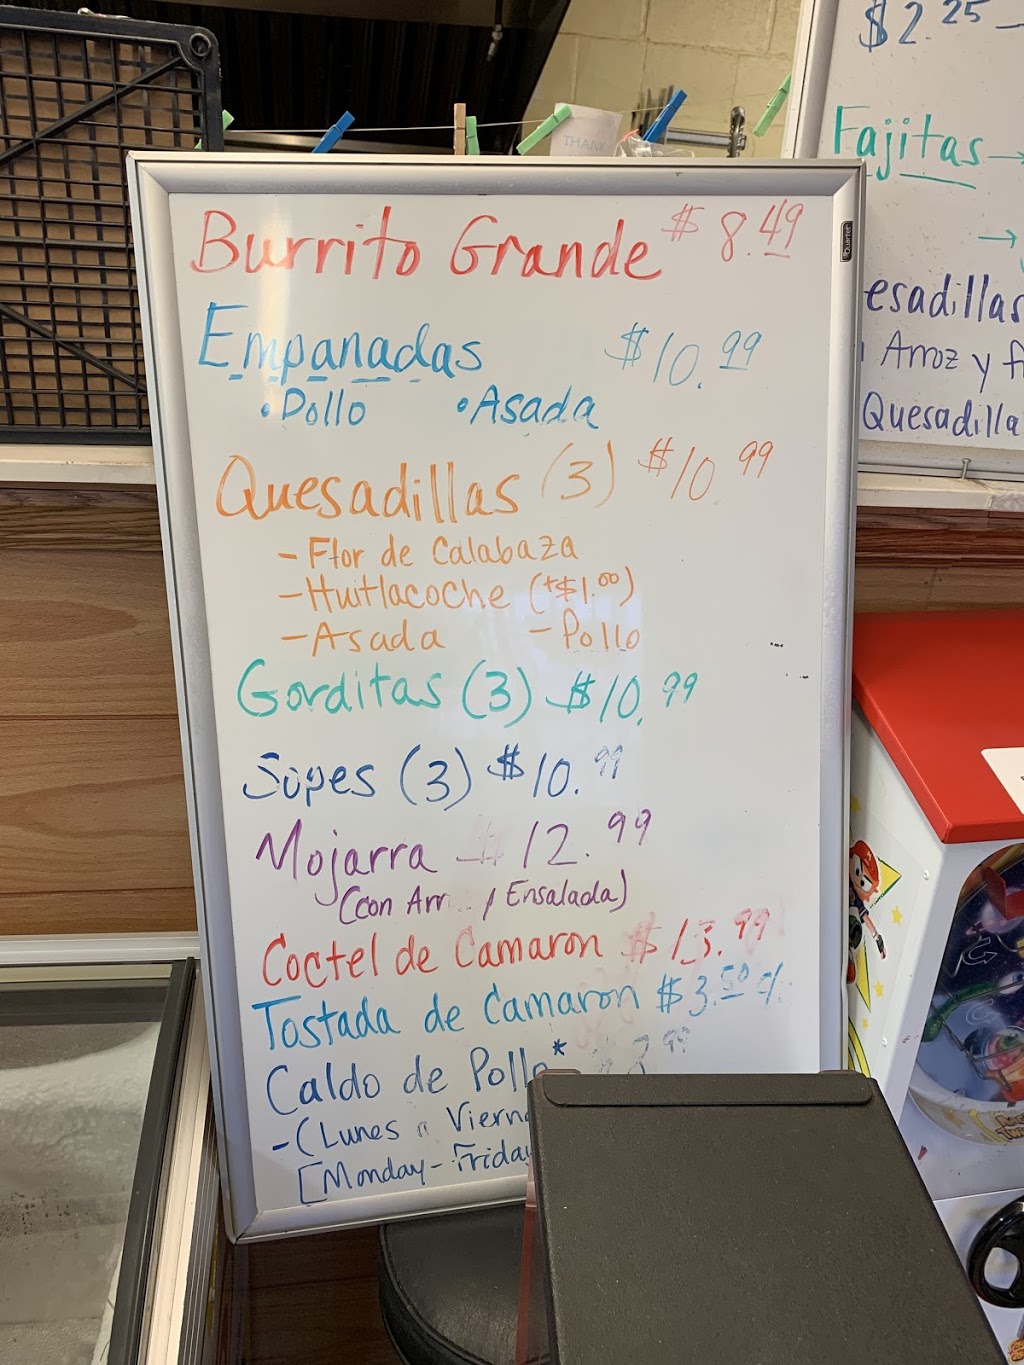 Burrito Grande $8.49
Empanadas $10.99
• Pollo • Asada
Quesadillas (3) $10.99
- Flor de Calabaza
- Huitlacoche (+$1.00)
- Asada - Pollo
Gorditas (3) $10.99
Sopes (3) $10.99
Mojarra $12.99
(con Arr y Ensalada)
Coctel de Camaron $13.99
Tostada de Camaron $3.50 c/
Caldo de Pollo*
- (Lunes a Vierne
[Monday - Friday
Quartet
THANK
$2.25
Fajitas →
→
esadillas
Arroz y f
Quesadilla